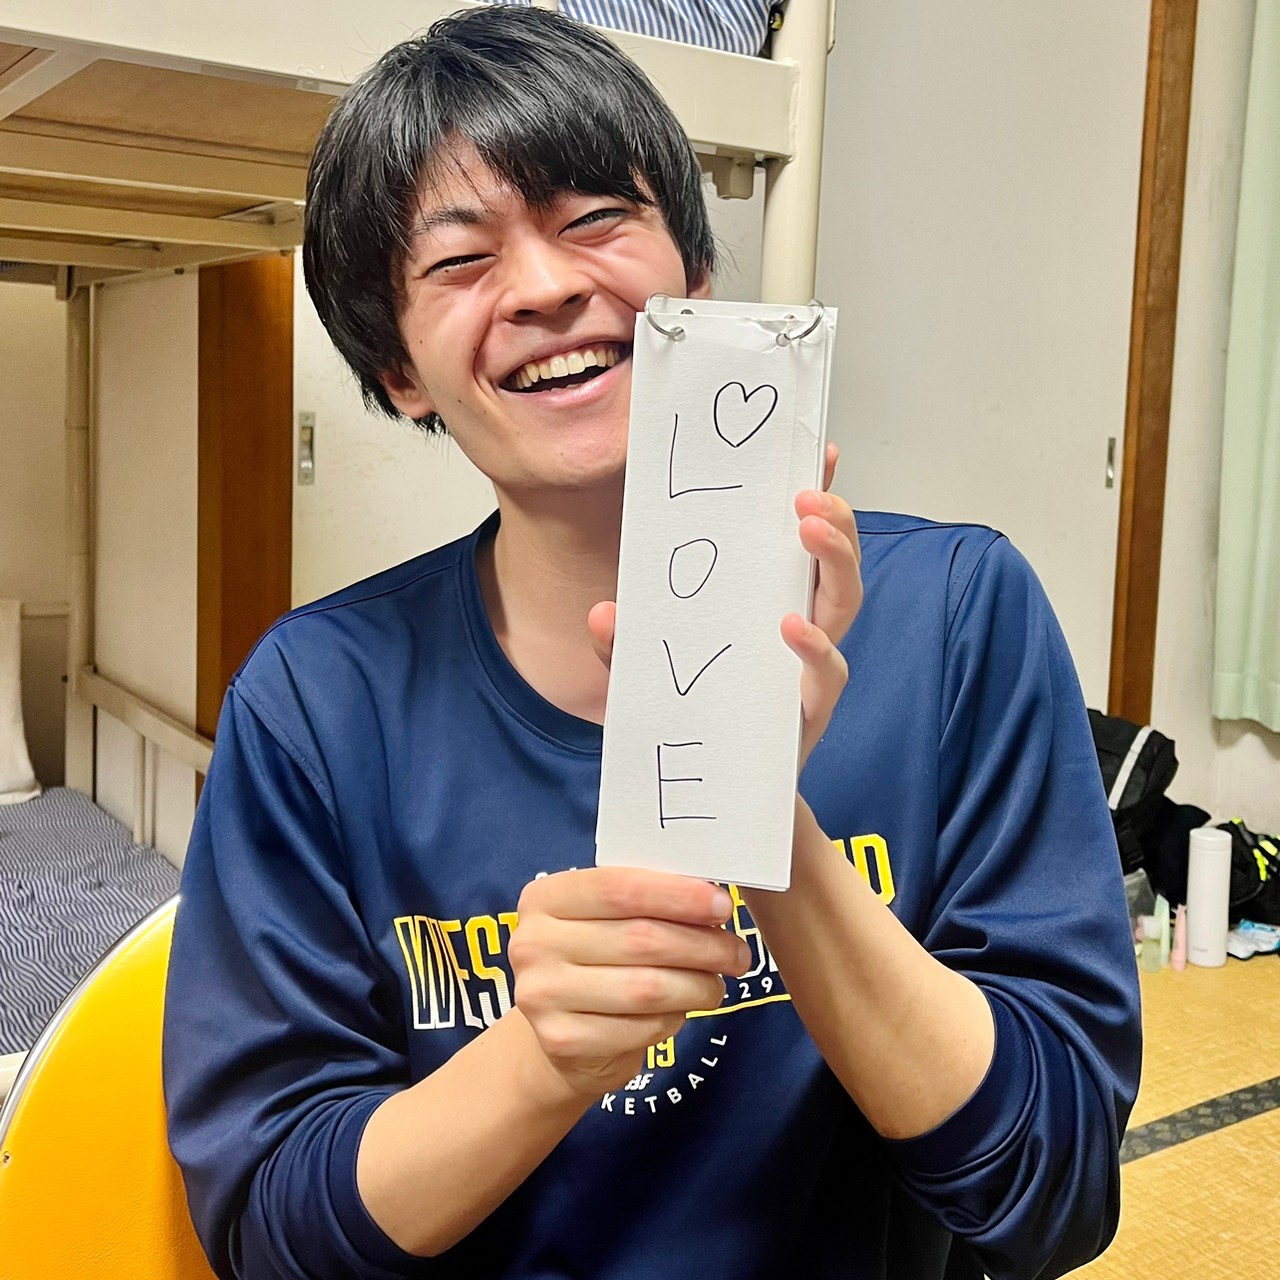 LOVE
WES
29
19
BF
KETBALL